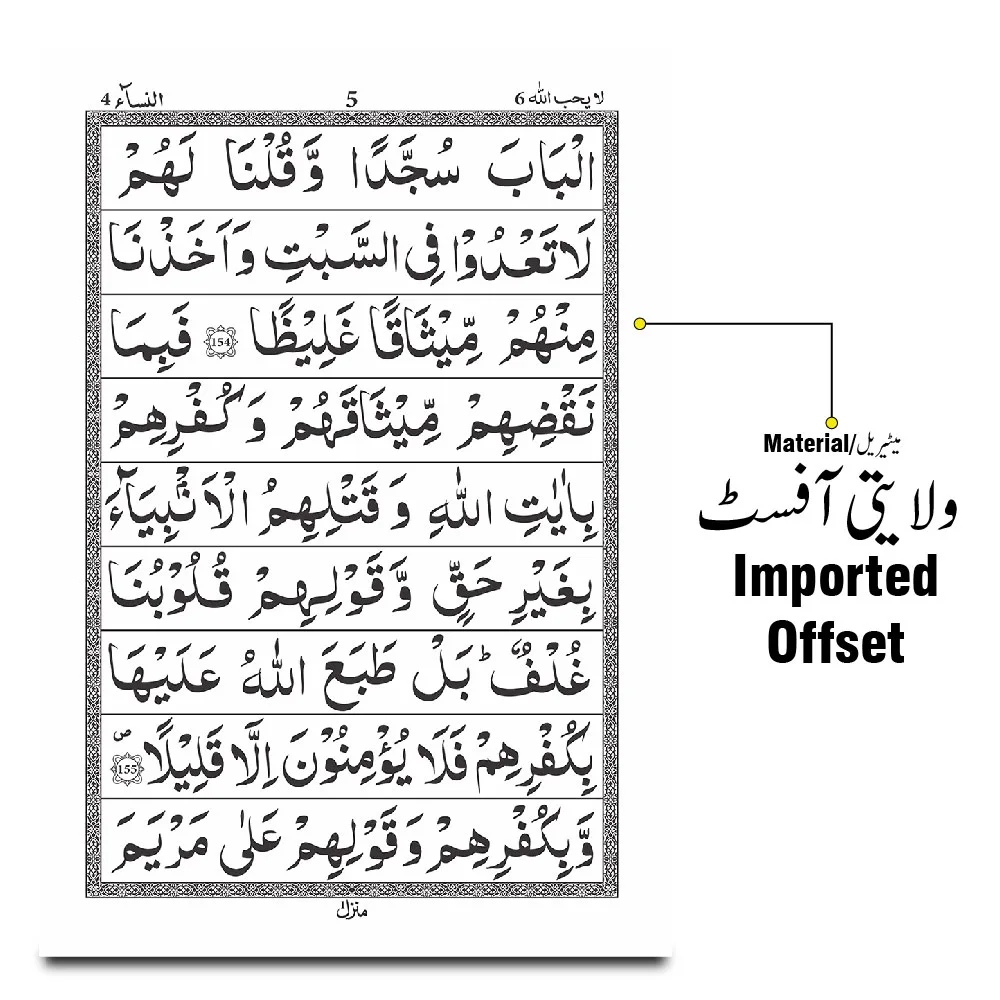 النساۤء 4
5
لا یحب اللہ 6
الْبَابَ سُجَّدًا وَّقُلْنَا لَهُمْ
لَا تَعْدُوْا فِی السَّبْتِ وَاَخَذْنَا
مِنْهُمْ مِّیْثَاقًا غَلِیْظًا 154 فَبِمَا
نَقْضِهِمْ مِّیْثَاقَهُمْ وَكُفْرِهِمْ
بِاٰیٰتِ اللّٰهِ وَقَتْلِهِمُ الْاَنْۢبِیَآءَ
بِغَیْرِ حَقٍّ وَّقَوْلِهِمْ قُلُوْبُنَا
غُلْفٌ ؕ بَلْ طَبَعَ اللّٰهُ عَلَیْهَا
بِكُفْرِهِمْ فَلَا یُؤْمِنُوْنَ اِلَّا قَلِیْلًا 155 ص
وَّبِكُفْرِهِمْ وَقَوْلِهِمْ عَلٰی مَرْیَمَ
منزل
Material/میٹیریل
ولایتی آفسٹ
Imported
Offset